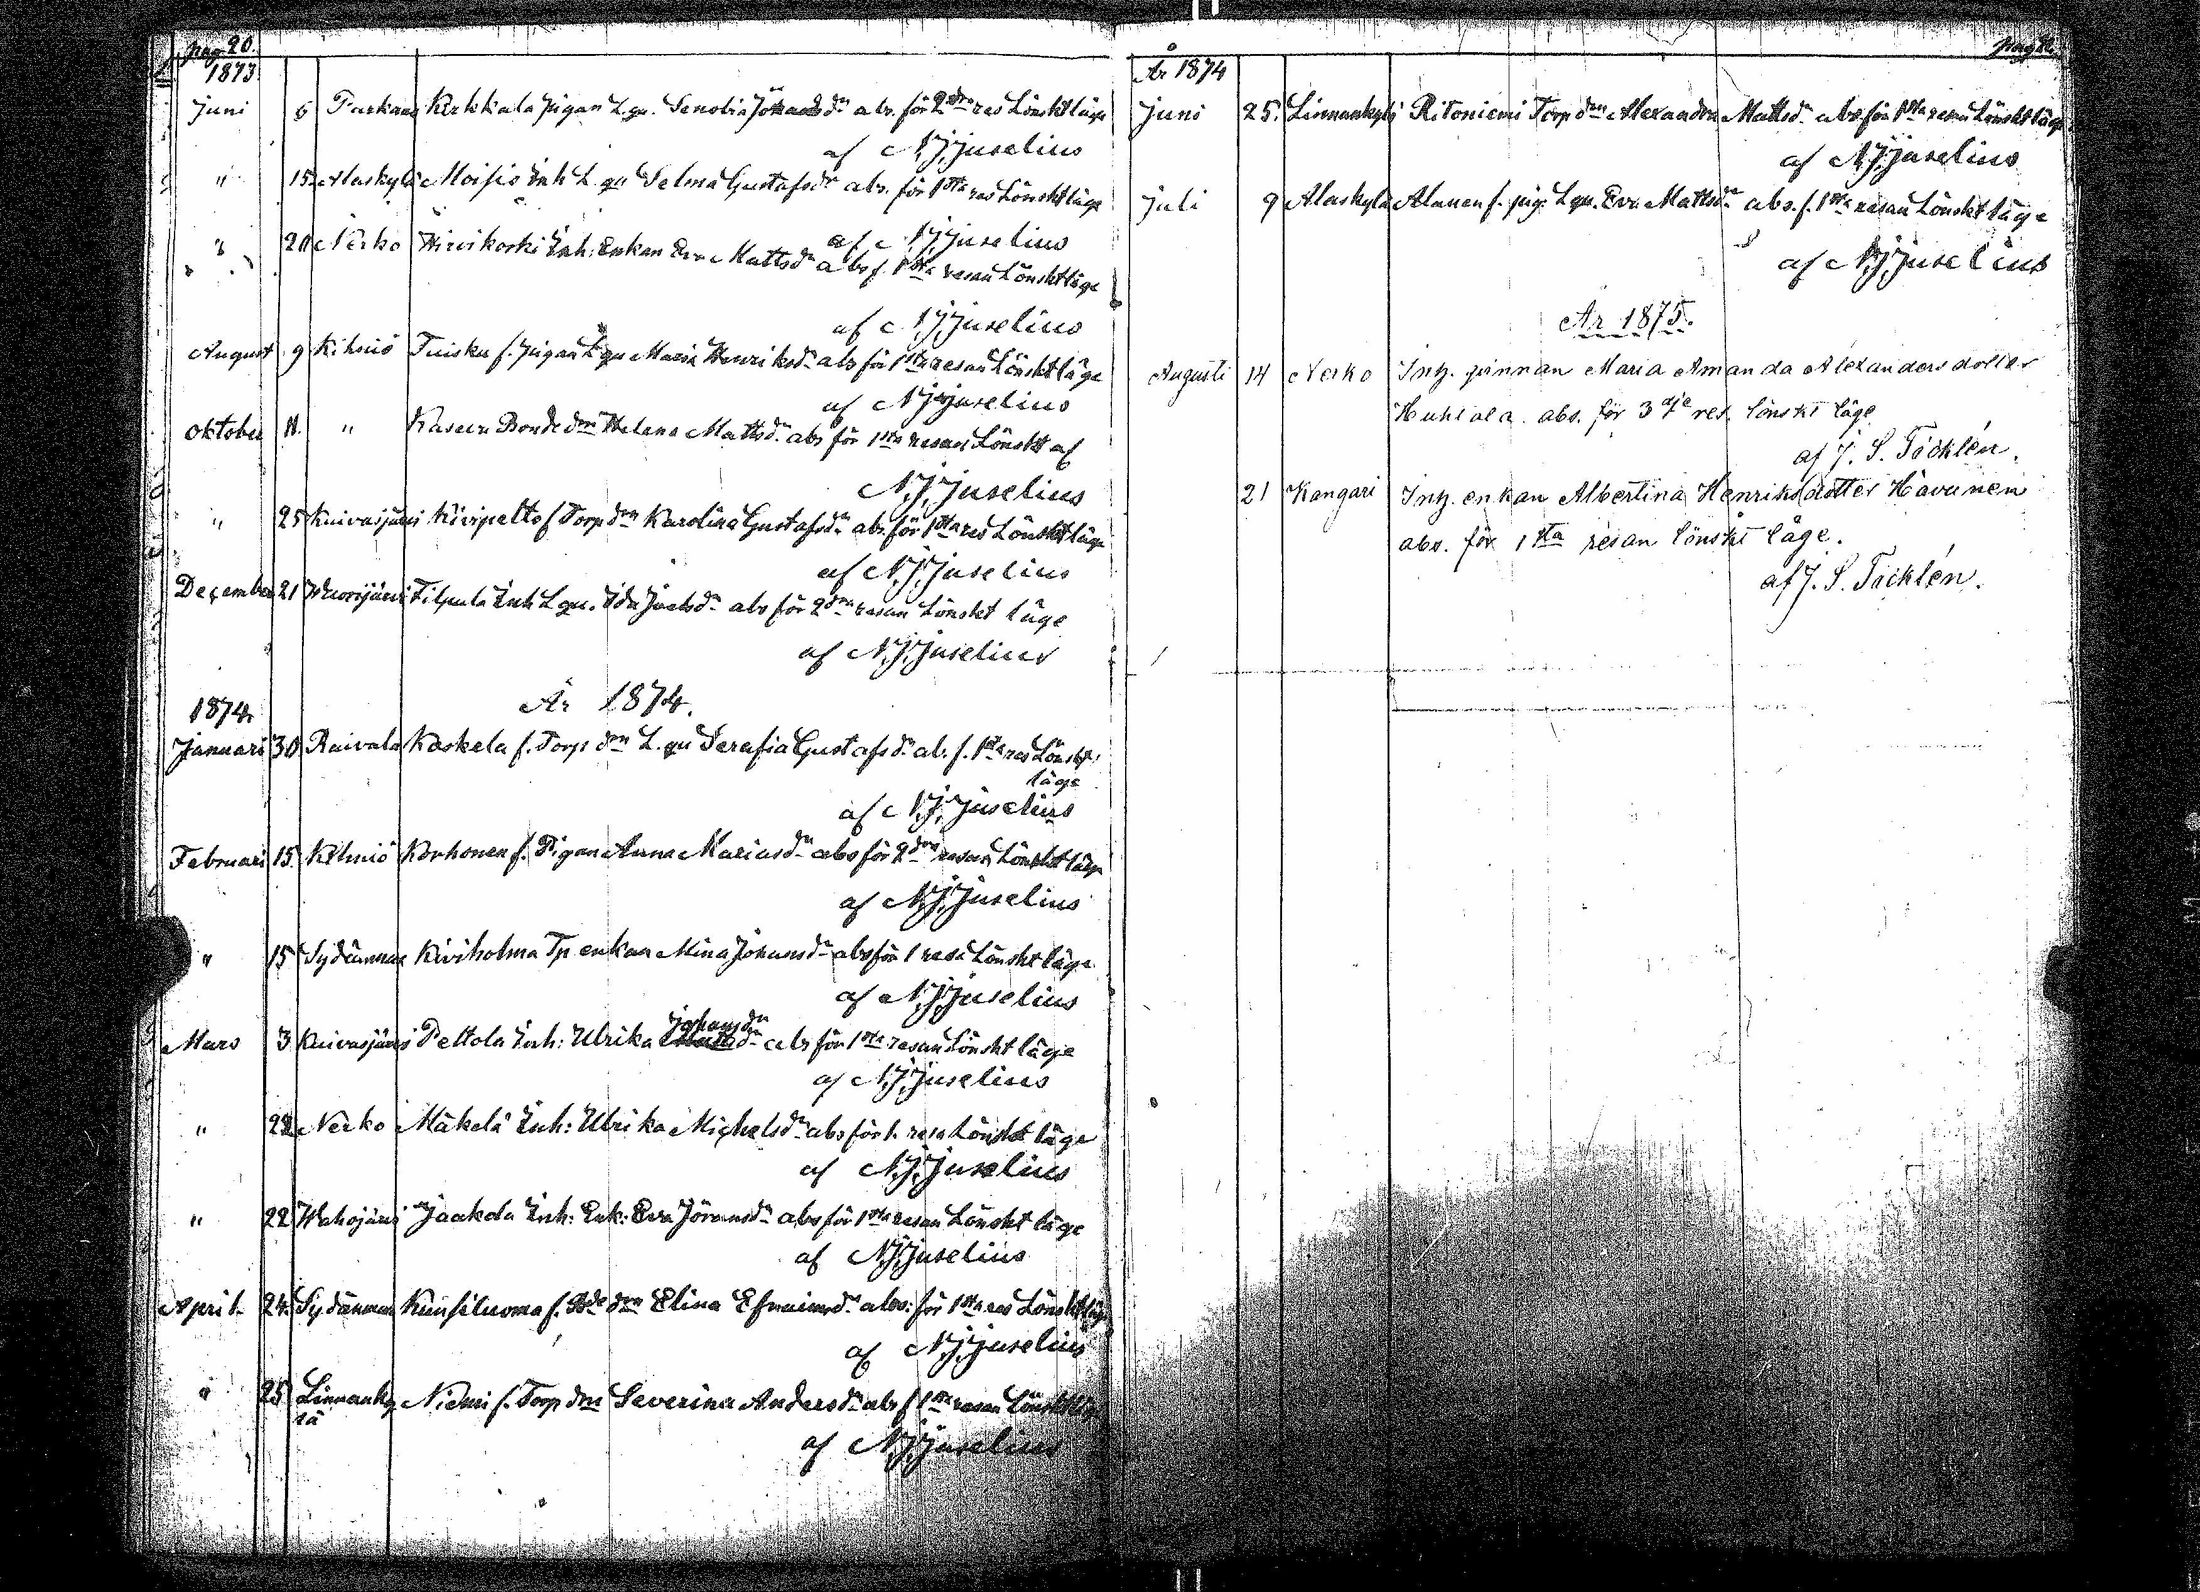 pag 20.
1873
Juni 6 Parkano Kirkkala pigan L.qv. Senobia Johansdr abs. för 2dra res Lönskt läge
af N.J. Juselius
" 15 Alaskylä Moisio Inh L.qv Selma Gustafsdr abs. för 1sta res Lönskt läge
af N.J. Juselius
" 20 Nerko Hirvikoski Inh: Enkan Eva Mattsdr abs f. 1sta resan Lönskt läge
af N.J. Juselius
August 9 Kihniö Tuisku f. pigan L.qv Maria Henriksdr abs för 1sta resan Lönskt läge
af N.J. Juselius
Oktober 11. " Bonde dnn Helena Mattsdr abs för 1sta resan Lönskt af
N.J. Juselius
" 25 Kuivasjärvi Kivipelto f. Torp dnn Karolina Gustafsdr abs. för 1sta res Lönskt läge
af N.J. Juselius
December 21 Vuorijärvi Filpula Inh L.qv. Ida Joelsdr abs för 2dra resan Lönskt läge
af N.J. Juselius
1874. År 1874.
Januari 30. Raivala Koskela f. Torp dnn L.qv Serafia Gustafsdr ab. f. 1sta res Lönskt
läge
af N.J. Juselius
Februari 15. Kihniö Korhonen f. Pigan Anna Mariasdr abs för 2dra resan Lönskt läge
af N.J. Juselius
" 15 Sydänmaa Kiviholma Tp enkan Mina Johansdr abs för 1 resa Lönskt läge
af N.J. Juselius
Mars 3 Kuivasjärvi Peltola Inh: Ulrika Johansdr abs för 1sta resan Lönskt läge
af N.J. Juselius
" 22 Nerko Mäkelä Inh: Ulrika Michelsdr abs för 1. resa Lönskt läge
af N.J. Juselius
" 22 Wahojärvi Jaakola Inh: Enk: Eva Jöransdr abs för 1sta resan Lönskt läge
af N.J. Juselius
April 24. Sydänmaa Kuusiluoma f. Bde dnn Elina Efraimsdr abs: för 1sta res Lönskt läge
af N.J. Juselius
" 25 Linnanky Niemi f. Torp dnn Severina Andersdr abs f 1sta resan Lönskt läge
lä
af N.J. Juselius
År 1874
Juni 25. Linnankylä Ritoniemi Torp dnn Alexandra Mattsdr abs för 1sta resan Lönskt läge
af N.J. Juselius
Juli 9 Alaskylä Alanen f. pig. L.qv. Eva Mattsdr abs. f. 1sta resan Lönskt läge
af N.J. Juselius
År 1875.
Augusti 14 Nerko Inh. pinnan Maria Amanda Alexandersdotter
Huhtala. abs. för 3dje res. lönskt läge
af J. S. Täcklén.
21 Kangari Inh. enkan Albertina Henriksdotter Havunen
abs. för 1sta resan lönskt läge.
af J. S. Täcklén.